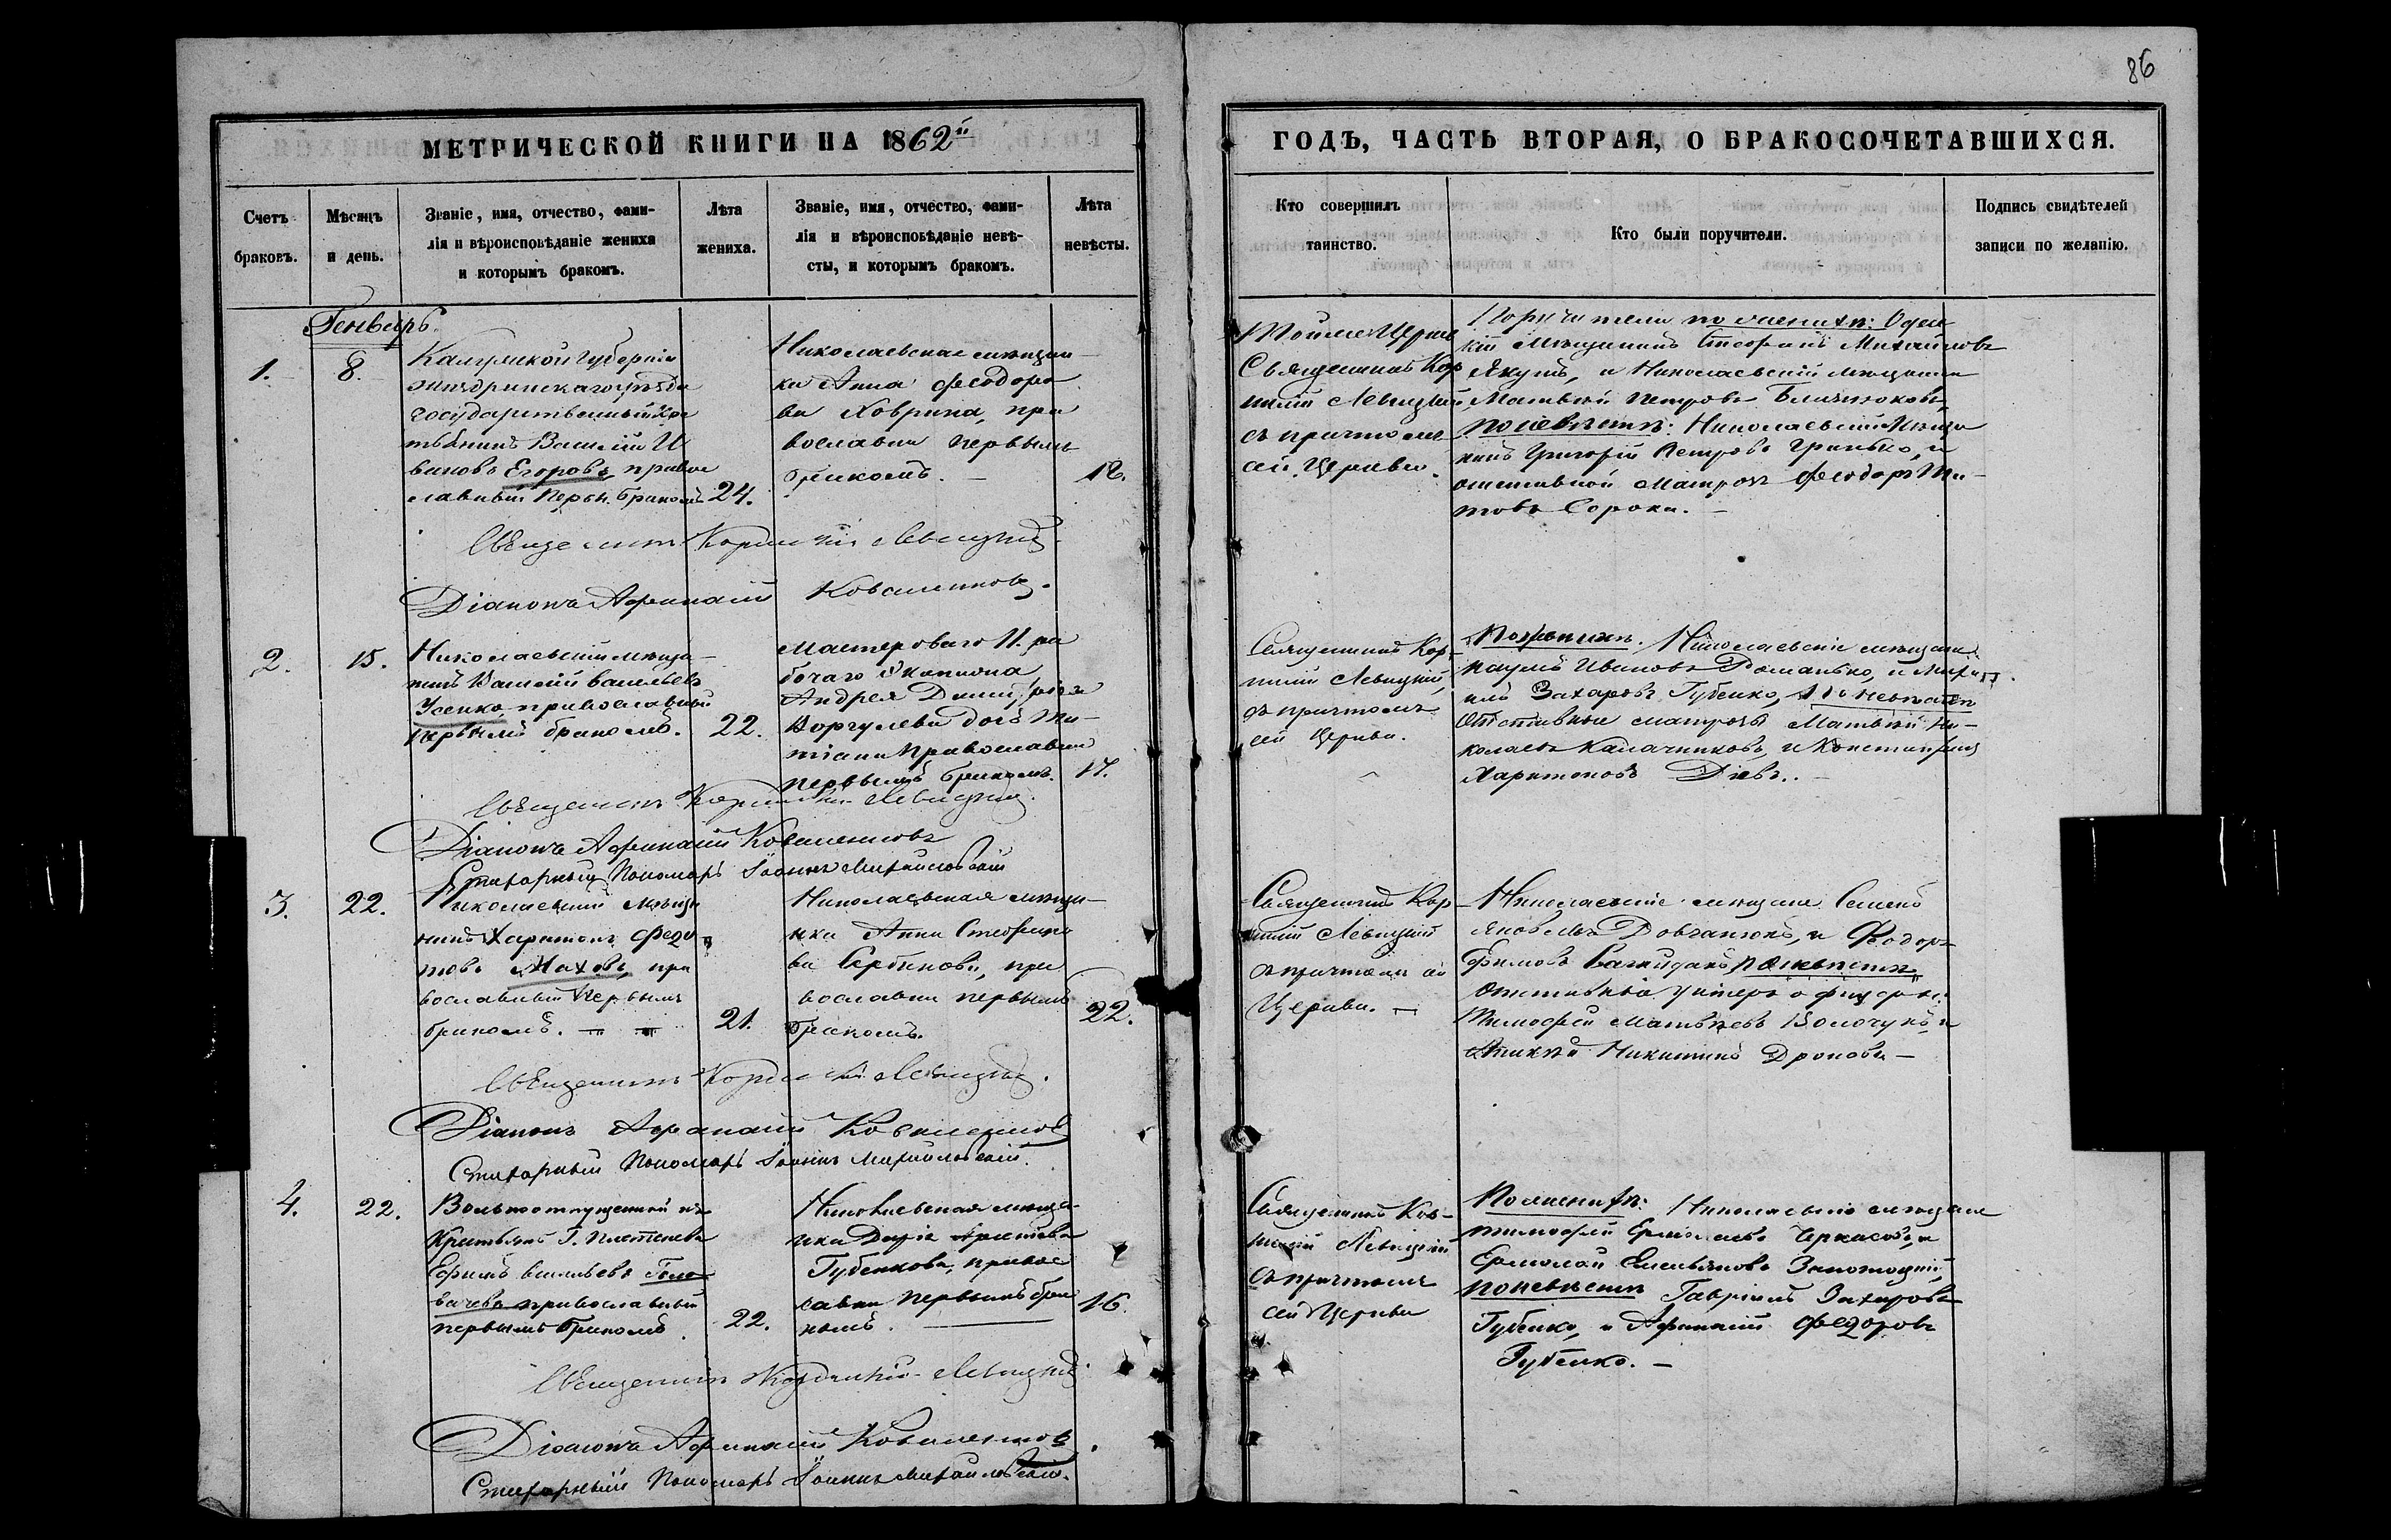 86
МЕТРИЧЕСКОЙ КНИГИ НА 1862й
ГОДЪ, ЧАСТЬ ВТОРАЯ, О БРАКОСОЧЕТАВШИХСЯ.
Счетъ
браковъ.
Мѣсяцъ
и день.
Званіе, имя, отчество, фами-
лія и вѣроисповѣданіе жениха
и которымъ бракомъ.
Лѣта
жениха.
Званіе, имя, отчество, фами-
лія и вѣроисповѣданіе невѣ-
сты, и которымъ бракомъ.
Лѣта
невѣсты.
Кто совершилъ
таинство.
Кто были поручители.
Подпись свидѣтелей
записи по желанію.
Генварь.
1.
8.
Калужской губерніи
Жиздринскаго уѣзда
государственный кре
стьянинъ Василій И
вановъ Егоровъ, правос
лавный перв. бракомъ
24.
Николаевская мѣщан-
ка Анна Феодоро
ва Ховрина, пра
вославна первымъ
бракомъ. —
18.
Священникъ Кор
нилій Левицкій
съ причтомъ
сей Церкви.
Поручители по женихѣ: Одес
кій мѣщанинъ Стефанъ Михайловъ
Якумъ, и Николаевскій мѣщанинъ
Матвѣй Петровъ
по невѣстѣ: Николаевскій мѣща
нинъ Григорій Петровъ Гринько, и
отставной матрозъ Феодоръ Ти-
товъ Сорока. —
Священникъ Корнилій Левицкій
Діаконъ Афанасій Коваленковъ.
2.
15.
Николаевскій мѣща-
нинъ Василій Васильевъ
Усенко, православный
первымъ бракомъ.
22.
Мастероваго И. ра
бочаго экипажа
Андрея
дочь Та-
тіана православна
первымъ бракомъ.
17.
Священникъ Кор-
нилій Левицкій,
съ причтомъ
сей Церкви.
По женихѣ. Николаевскіе мѣщане
Наумъ Ивановъ Романько, и Миха
илъ Захаровъ Губенко, по невѣстѣ
Отставные матрозы Матвѣй Ни-
колаевъ Калачниковъ, и Константинъ
Харитоновъ Діевъ. —
Священникъ Корнилій Левицкій.
Діаконъ Афанасій Коваленковъ
Стихарный Пономарь Іоаннъ Михайловскій
3.
22.
Николаевскій мѣща
нинъ Харитонъ Федо
товъ Маховъ, пра
вославный первымъ
бракомъ. — —
21.
Николаевская мѣща-
нка Анна Стефано
ва Сербинова, пра
вославна первымъ
бракомъ.
22.
Священникъ Кор-
нилій Левицкій
съ причтомъ сей
Церкви. —
Николаевскіе мѣщане Семенъ
Яковлевъ Довганюкъ, и Феодоръ
Ефимовъ по невѣстѣ
отставніе унтеръ офицеры
Тимофей Матвѣевъ Волочукъ, и
Никитинъ Дроновъ —
Священникъ Корнилій Левицкій.
Діаконъ Афанасій Коваленковъ
Стихарный Пономарь Іоаннъ Михайловскій.
4.
22.
Вольноотпущенный изъ
крестьянъ Г. Плетенева
Ефимъ Васильевъ
православный
первымъ бракомъ.
22.
Николаевская мѣща-
нка Дарія
Губенкова, правос
лавна первымъ бра
комъ.
16.
Священникъ Кор-
нилій Левицкій
съ причтомъ
сей Церкви
По женихѣ: Николаевскіе мѣщане
Тимофей Ермолаевъ Черкасовъ, и
Ермолай Емельяновъ
по невѣстѣ Гавріилъ Захаровъ
Губенко, и Афанасій Федоровъ
Губенко. —
Священникъ Корнилій Левицкій
Діаконъ Афанасій Коваленковъ.
Стихарный Пономарь Іоаннъ Михайловскій.